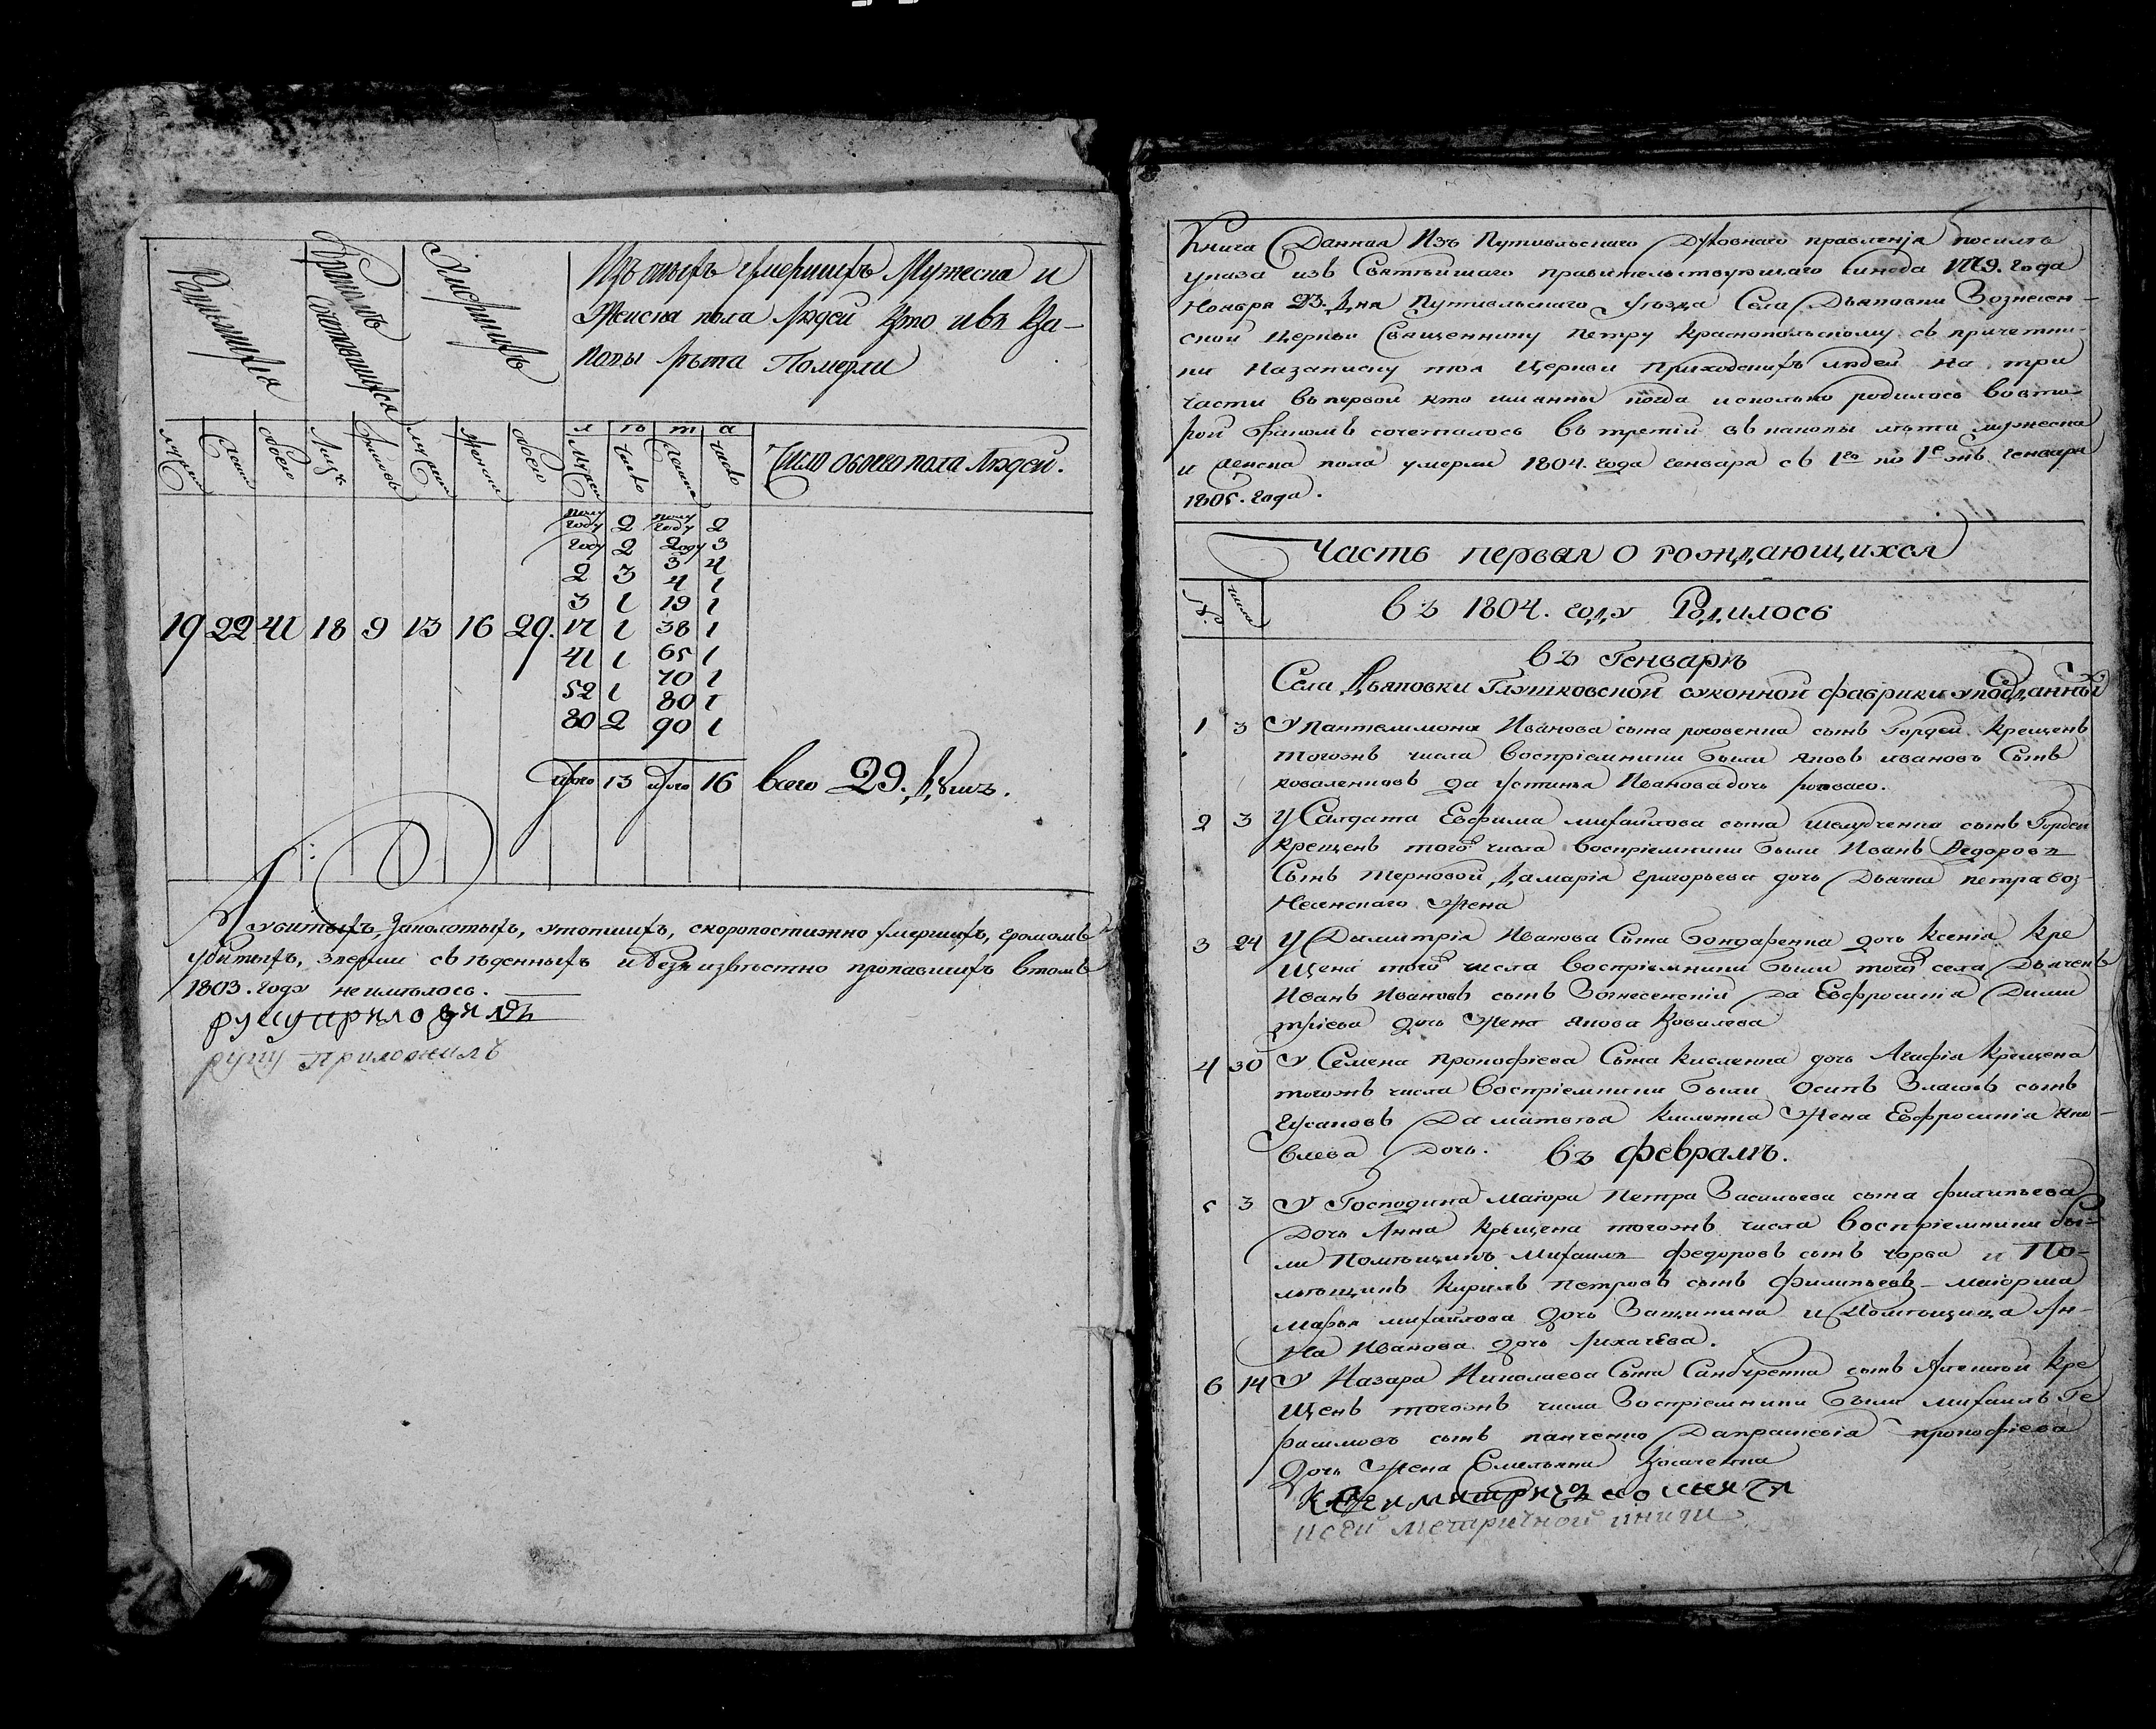 Рудившихся
Бракомъ сочетавшихся
Умершихъ
Изъ тѣхъ умершихъ Мужеска и
Женска пола Людей Кто ивъ Ка-
ковы лѣта Померли
мужеска
женска
обоего
Лицъ
браковъ
мужеска
женска
обоего
л ѣ т а
Мужеска
число
Женска
число
Число обоего пола Людей.
полугоду 2 полугоду 2
году 2 2 году 3
2 3 3 4
3 1 4 1
17 1 19 1
41 1 38 1
52 1 65 1
80 2 70 1
80 1
90 1
19 22 41 18 9 13 16 29.
Итого 13 Итого 16 Всего 29. Душъ.
А убитыхъ, заколотыхъ, утопшихъ, скоропостижно умершихъ, громомъ
убитыхъ, зверми съѣденныхъ и безъизвѣстно пропавшихъ втомъ
1803. году неимѣлось.
руку приложилъ
руку приложилъ
Книга Данная Изъ Путивльскаго Духовнаго правленїя посилѣ
указа изъ Святѣйшаго правительствующаго Синода 1779. года
Ноября 23. дня Путивльскаго уѣзда Села Дьяковки Вознесен-
ской Церкви Священнику Петру Краснопольскому съ причетни-
ки Назаписку тоя Церкви Приходскихъ людей на три
части въ первой кто имянны когда исколько родилось вовто-
рой бракомъ сочеталось въ третїй въ каковы лѣта мужеска
и женска пола умерли 1804. года генваря съ 1го по 1е жъ генваря
1805. года.
Часть первая о рождающихся
№. числа
въ 1804. году Родилось
въ Генварѣ
Села Дьяковки Глушковской суконной фабрики уподданныхъ
1 3 У Пантелимона Иванова сына роковенка сынъ Гордей крещенъ
тогожъ числа воспрїемники были яковъ ивановъ Сынъ
коваленковъ да Устинья Иванова дочь
2 3 У Салдата Евфима михайлова сына шелудченка сынъ Гордей
крещенъ тогожъ числа воспрїемники были Иванъ Федоровъ
Сынъ терновой, да марїя григорьева дочь Дьячка петра воз-
несенскаго Жена
3 24 У Дымитрїя Иванова Сына Бондаренка дочь Ксенїя Кре
щена тогожъ числа воспрїемники были тогожъ села Дьячекъ
Иванъ Ивановъ сынъ Вознесенскїй да Евфросинїя Дими
трїева дочь Жена якова Ковалева
4 30 У Семена Прокофїева Сына кисленка дочь Агафїя Крещена
тогожъ числа воспрїемники были Осипъ Власовъ сынъ
Гусаковъ Да матвѣя кисленка Жена Евфросинїя яко-
влева Дочь. въ Февралѣ.
5 3 У Господина Маїора Петра Васильева сына филипьева
Дочь Анна крещена тогожъ числа воспрїемники бы-
ли Помѣщикъ Михаилъ федоровъ сынъ чорба и По-
мѣщикъ Кирилъ Петровъ сынъ Филипьевъ маїорша
Марья михайлова дочь Защинина и Помѣщица Ан-
на Иванова дочь лихачева.
6 14 У Назара Николаева Сына Санбуренка сынъ Алексѣй кре
щенъ тогожъ числа воспрїемники были михаилъ Ге
расимовъ сынъ панченко Дапраскевїя прокофїева
Дочь Жена Емельяна Косаченка
Ксей метричной
ксей метричной книги